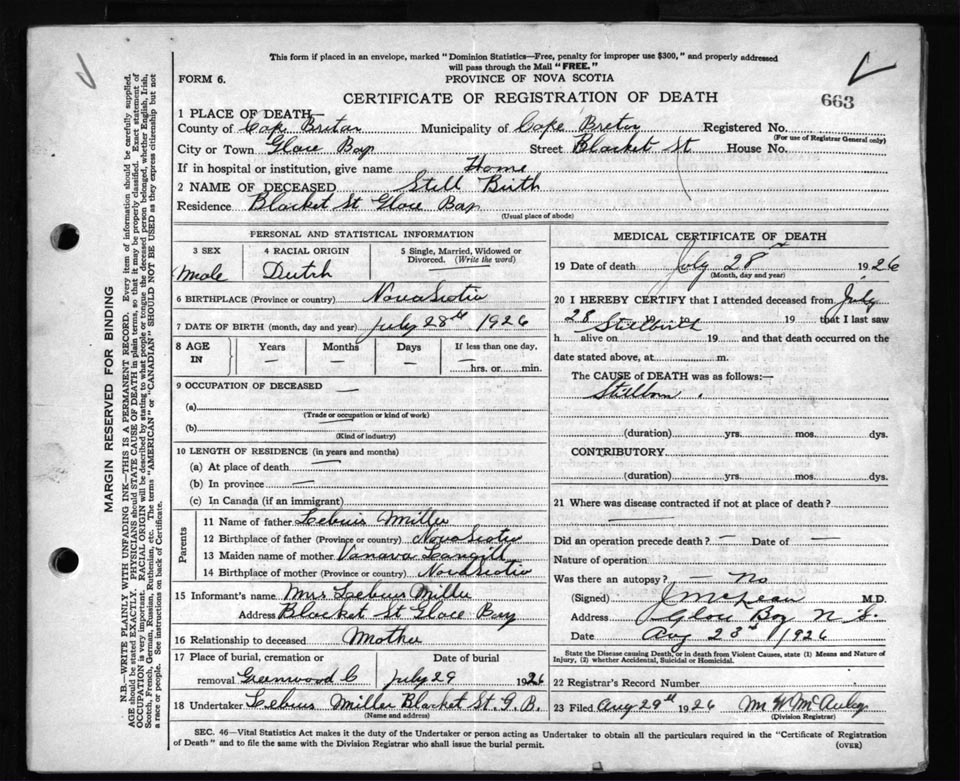 This form if placed in an envelope, marked "Dominion Statistics—Free, penalty for improper use $300," and properly addressed
will pass through the Mail "FREE."
FORM 6.
PROVINCE OF NOVA SCOTIA
CERTIFICATE OF REGISTRATION OF DEATH
663
1 PLACE OF DEATH—
County of Cape Breton Municipality of Cape Breton Registered No.
(For use of Registrar General only)
City or Town Glace Bay Street Blacket St House No.
If in hospital or institution, give name Home
2 NAME OF DECEASED Still Birth
Residence Blacket St Glace Bay
(Usual place of abode)
PERSONAL AND STATISTICAL INFORMATION
3 SEX 4 RACIAL ORIGIN 5 Single, Married, Widowed or
Divorced. (Write the word)
Male Dutch —
6 BIRTHPLACE (Province or country) Nova Scotia
7 DATE OF BIRTH (month, day and year) July 28th 1926
8 AGE
IN
Years Months Days If less than one day,
— — — —
hrs. or min.
9 OCCUPATION OF DECEASED —
(a)
(Trade or occupation or kind of work)
(b)
(Kind of industry)
10 LENGTH OF RESIDENCE (in years and months)
(a) At place of death —
(b) In province —
(c) In Canada (if an immigrant)
Parents
11 Name of father Miller
12 Birthplace of father (Province or country) Nova Scotia
13 Maiden name of mother Langill
14 Birthplace of mother (Province or country) Nova Scotia
15 Informant's name Mrs Miller
Address Blacket St Glace Bay
16 Relationship to deceased Mother
17 Place of burial, cremation or Date of burial
removal Greenwood C July 29 1926
18 Undertaker Miller Blacket St. G. B.
(Name and address)
MEDICAL CERTIFICATE OF DEATH
19 Date of death July 28 1926
(Month, day and year)
20 I HEREBY CERTIFY that I attended deceased from July
28 19 that I last saw
Stillbirth
h alive on 19 and that death occurred on the
date stated above, at m.
The CAUSE of DEATH was as follows:—
Stillborn.
(duration) yrs. mos. dys.
CONTRIBUTORY
(duration) yrs. mos. dys.
21 Where was disease contracted if not at place of death?
Did an operation precede death? — Date of —
Nature of operation
Was there an autopsy? — No
(Signed) J McLean M.D.
Address Glace Bay N S.
Date Aug 23rd / 1926
State the Disease causing Death, or in death from Violent Causes, state (1) Means and Nature of
Injury, (2) whether Accidental, Suicidal or Homicidal.
22 Registrar's Record Number
23 Filed Aug 29th 1926 M W McAuley
(Division Registrar)
SEC. 46—Vital Statistics Act makes it the duty of the Undertaker or person acting as Undertaker to obtain all the particulars required in the "Certificate of Registration
of Death" and to file the same with the Division Registrar who shall issue the burial permit.
(OVER)
MARGIN RESERVED FOR BINDING
N.B.—WRITE PLAINLY WITH UNFADING INK—THIS IS A PERMANENT RECORD. Every item of information should be carefully supplied.
AGE should be stated EXACTLY. PHYSICIANS should STATE CAUSE OF DEATH in plain terms, so that it may be properly classified. Exact statement of
OCCUPATION is very important. RACIAL ORIGIN will be described by stating to what people or tongue the deceased person belonged, whether English, Irish,
Scotch, French, German, Russian, Ruthenian, etc. The terms "AMERICAN" or "CANADIAN" SHOULD NOT BE USED as they express citizenship but not
a race or people. See instructions on back of Certificate.